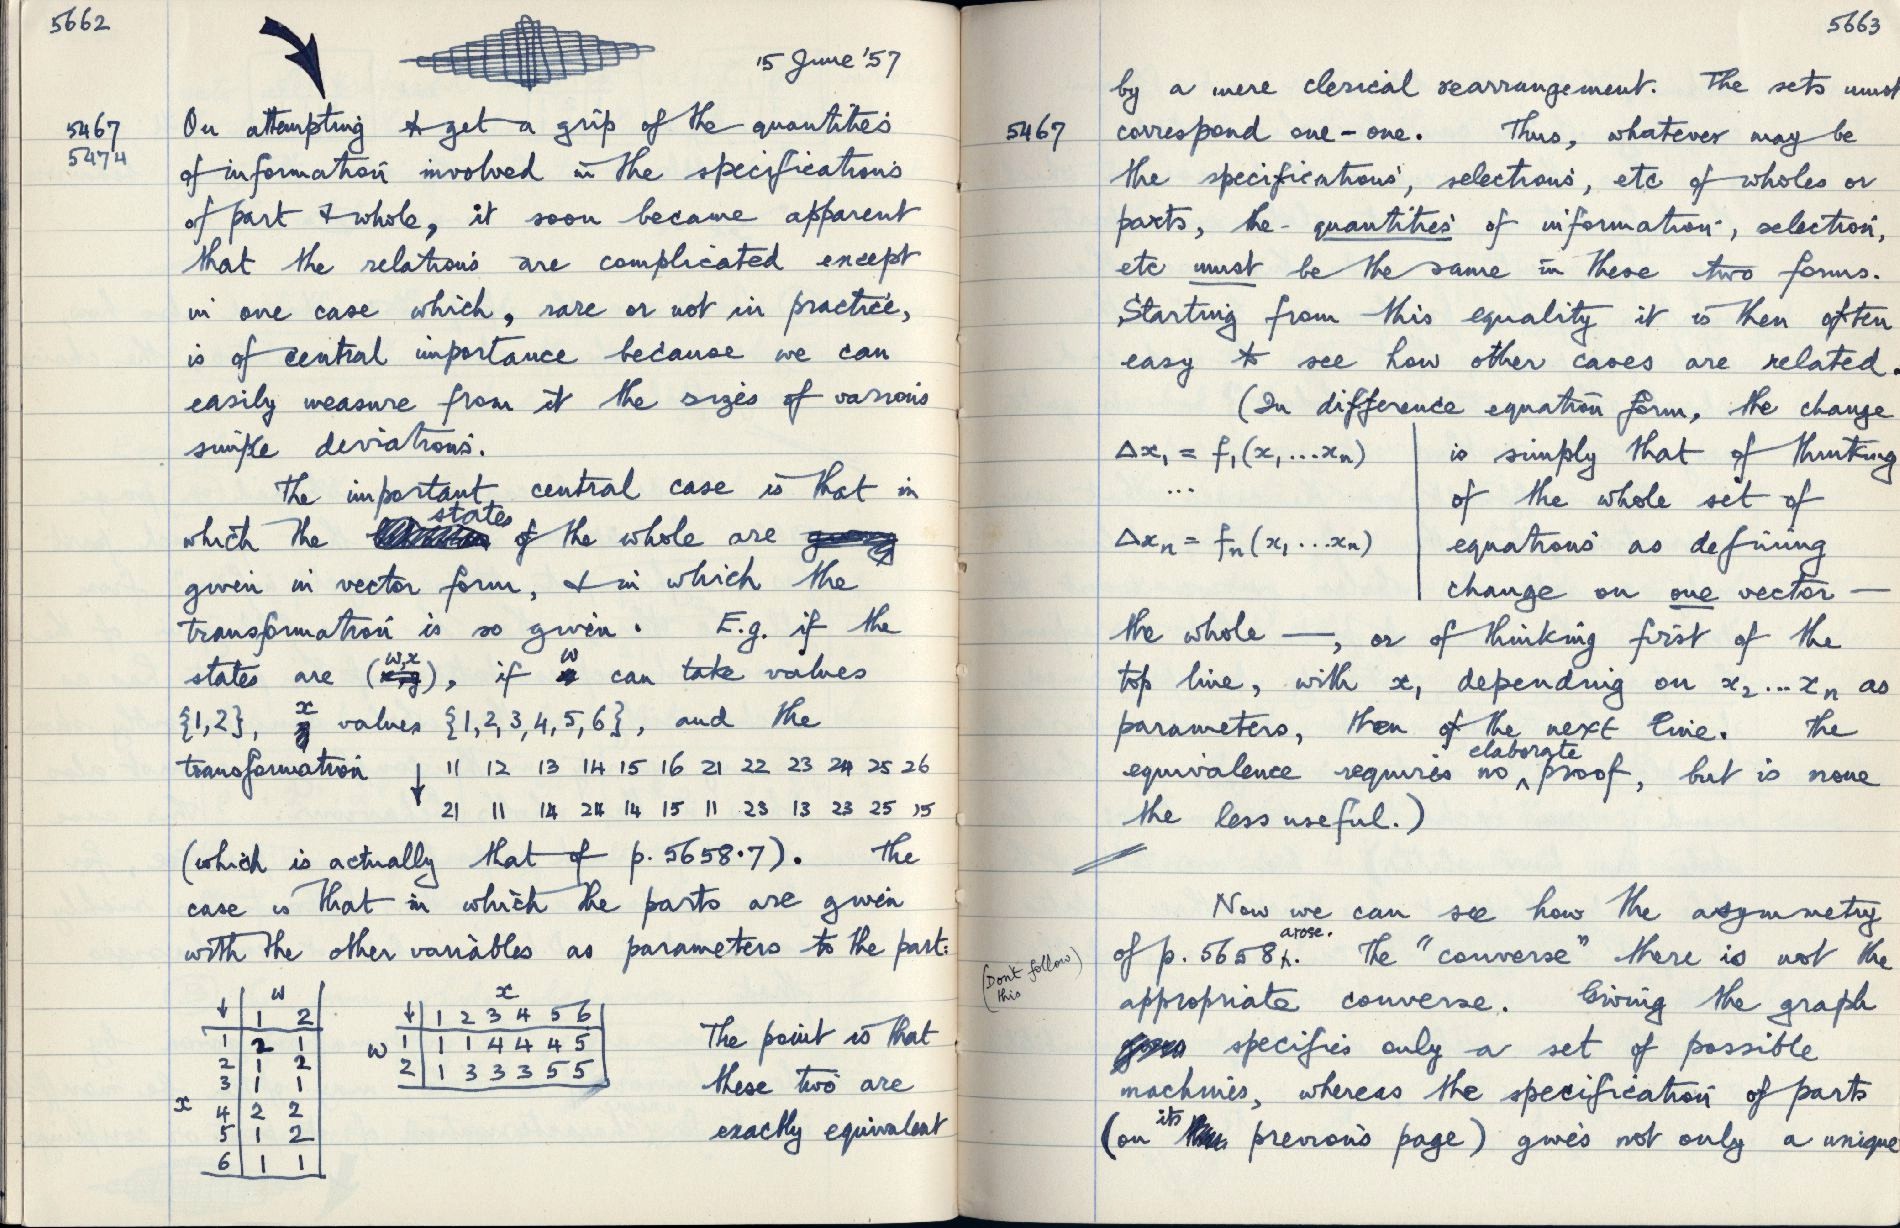 5662
15 June '57
5467
5474
On attempting to get a grip of the quantities
of information involved in the specifications
of part & whole, it soon became apparent
that the relations are complicated except
in one case which, rare or not in practice,
is of central importance because we can
easily measure from it the sizes of various
simple deviations.
The important, central case is that in
which the states of the whole are
given in vector form, & in which the
transformation is so given. E.g. if the
states are (w,x), if w can take values
{1,2}, x values {1,2,3,4,5,6}, and the
transformation ↓ 11 12 13 14 15 16 21 22 23 24 25 26
21 11 14 24 14 15 11 23 13 23 25 15
(which is actually that of p. 5658.7). The
case is that in which the parts are given
with the other variables as parameters to the part:
w
↓ 1 2
1 2 1
2 1 2
3 1 1
x 4 2 2
5 1 2
6 1 1
x
↓ 1 2 3 4 5 6
w 1 1 1 4 4 4 5
2 1 3 3 3 5 5
The point is that
these two are
exactly equivalent
5663
by a mere clerical rearrangement. The sets must
5467
correspond one-one. Thus, whatever may be
the specifications, selections, etc of wholes or
parts, the quantities of information, selection,
etc must be the same in these two forms.
Starting from this equality it is then often
easy to see how other cases are related.
(In difference equation form, the change
Δx₁ = f₁(x₁...xₙ)
...
Δxₙ = fₙ(x₁...xₙ)
is simply that of thinking
of the whole set of
equations as defining
change on one vector —
the whole —, or of thinking first of the
top line, with x₁ depending on x₂...xₙ as
parameters, then of the next line. The
equivalence requires no elaborate proof, but is none
the less useful.)
Now we can see how the asymmetry
of p. 5658 arose. The "converse" there is not the
(Don't follow this)
appropriate converse. Giving the graph
specifies only a set of possible
machines, whereas the specification of parts
(on its previous page) gives not only a unique